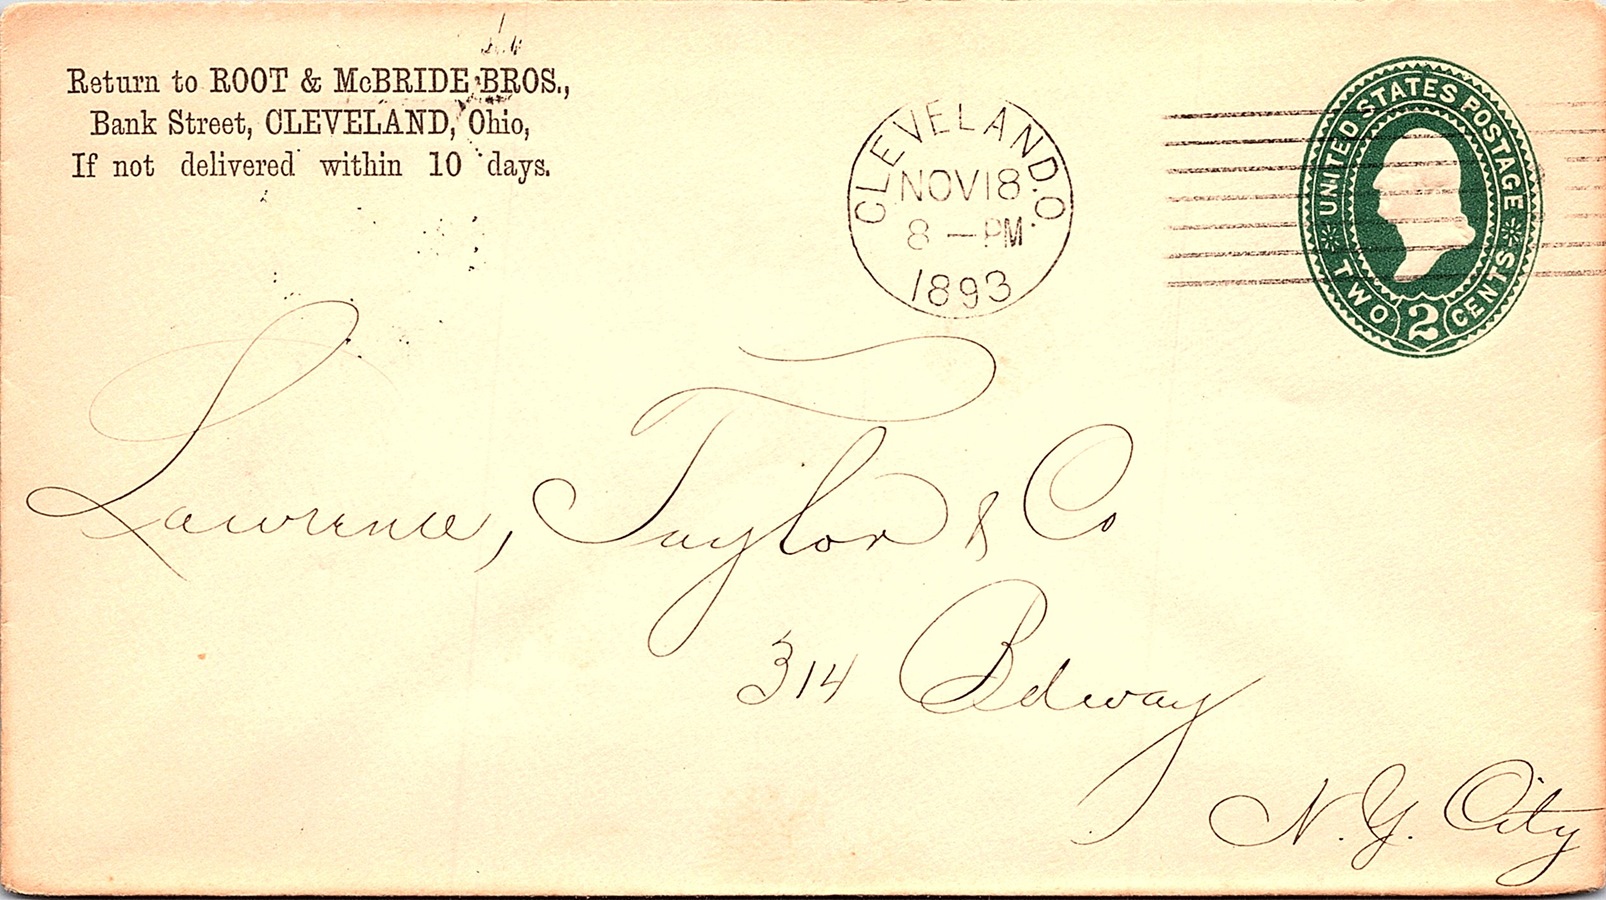 Return to ROOT & McBRIDE BROS.,
Bank Street, CLEVELAND, Ohio,
If not delivered within 10 days.
CLEVELAND.O.
NOV 18
8 — PM
1893
UNITED STATES POSTAGE
TWO 2 CENTS
Lawrence, Taylor & Co
314 Bdway
N.Y. City